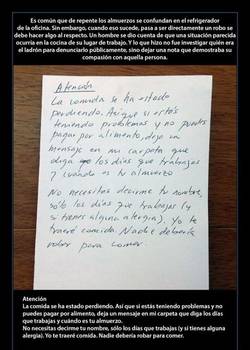 Es común que de repente los almuerzos se confundan en el refrigerador
de la oficina. Sin embargo, cuando eso sucede, pasa a ser directamente un robo se
debe hacer algo al respecto. Un hombre se dio cuenta de que una situación parecida
ocurría en la cocina de su lugar de trabajo. Y lo que hizo no fue investigar quién era
el ladrón para denunciarlo públicamente, sino dejar una nota que demostraba su
compasión con aquella persona.
Atención
La comida se ha estado
perdiendo. Así que si estás
teniendo problemas y no puedes
pagar por alimento, deja un
mensaje en mi carpeta que
diga los días que trabajas
y cuándo es tu almuerzo
No necesitas decirme tu nombre,
sólo los días que trabajas (y
si tienes alguna alergia). Yo te
traeré comida. Nadie debería
robar para comer.
Atención
La comida se ha estado perdiendo. Así que si estás teniendo problemas y no
puedes pagar por alimento, deja un mensaje en mi carpeta que diga los días
que trabajas y cuándo es tu almuerzo.
No necesitas decirme tu nombre, sólo los días que trabajas (y si tienes alguna
alergia). Yo te traeré comida. Nadie debería robar para comer.